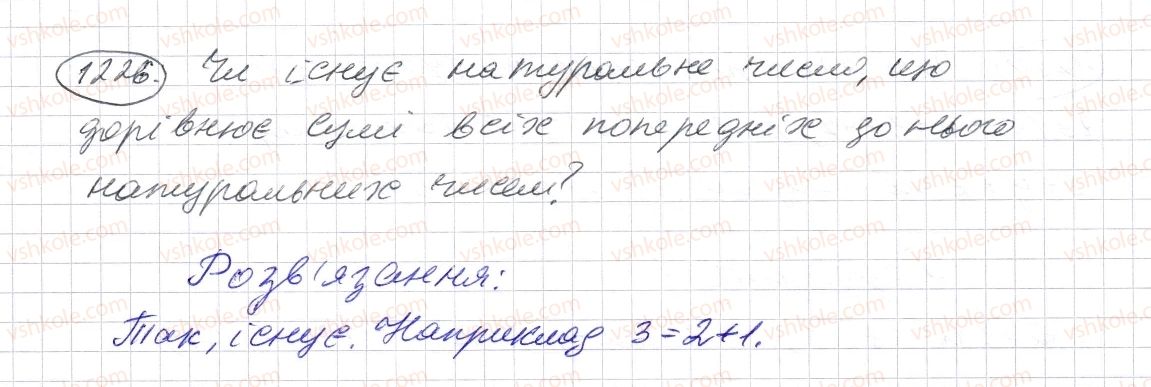 1226. Чи існує натуральне число, що
дорівнює сумі всіх попередніх до нього
натуральних чисел?
Розв'язання:
Так, існує. Наприклад 3=2+1.